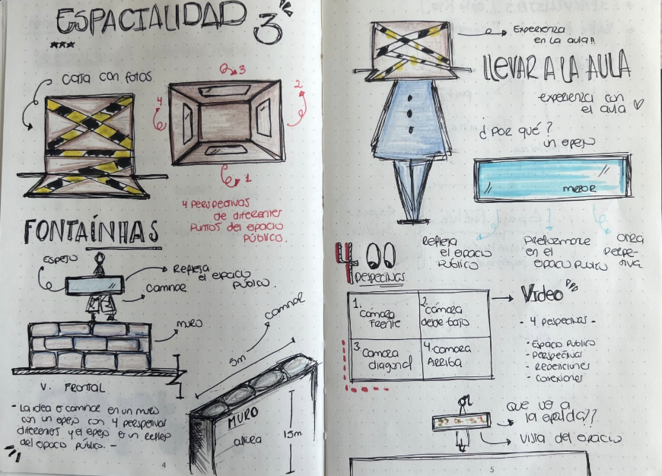 ESPACIALIDAD 3
caja con fotos
3
4
2
1
4 perspectivas
de diferentes
puntos del espacio
público.
FONTAÍNHAS
espejo
Refleja
el espacio
público.
caminar
muro
V. FRONTAL
- La idea es caminar en un muro
con un espejo con 4 perspectivas
diferentes y el espejo es un reflejo
del espacio público. -
caminar
5m
MURO
altura
1.5m
4
Experiencia
en la aula
LLEVAR A LA AULA
experiencia con
el aula
¿por qué?
un espejo
mirror
Refleja
el espacio
público
Performance
en el
espacio público
otra
perspe-
tiva
4
PERSPECTIVAS
1. cámara
frente
2. cámara
desde bajo
3 camara
diagonal
4. camara
Arriba
Video
- 4 perspectivas -
- Espacio Publico
- perspectivas
- Repeticiones
- conexiones
que va a
la espalda??
vista del espacio
5